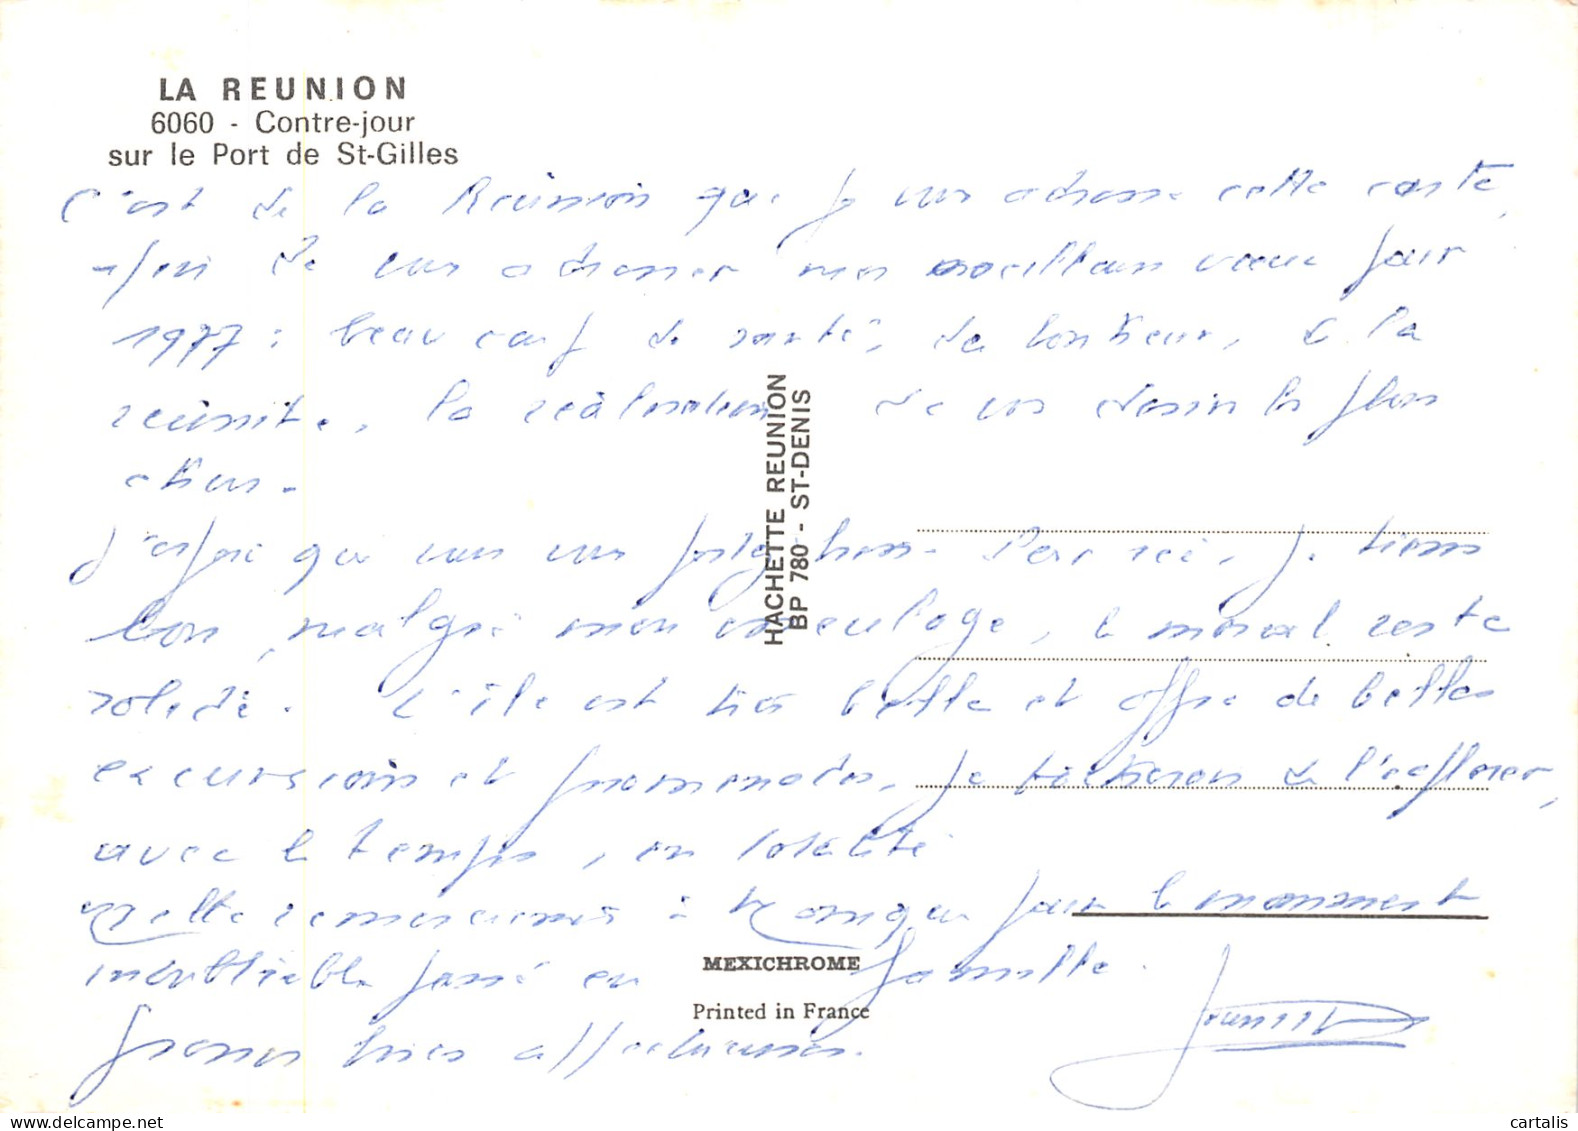 LA REUNION
6060 - Contre-jour
sur le Port de St-Gilles
C'est de la Réunion que je vous adresse cette carte,
afin de vous adresser mes meilleurs vœux pour
1977 : beaucoup de santé, de bonheur, de la
réussite, la réalisation de vos desirs les plus
chers.
J'espère que vous vous portez bien. Par ici, je tiens
bon, malgré mon esseulage, le moral reste
solide. L'île est très belle et offre de belles
excursions et promenades, je tâcherai de l'explorer,
avec le temps, en totalité
remerciements à pour le moment
inoubliable passé en famille.
Grosses bises affectueuses.
HACHETTE REUNION
BP 780 - ST-DENIS
MEXICHROME
Printed in France
cartalis
www.delcampe.net